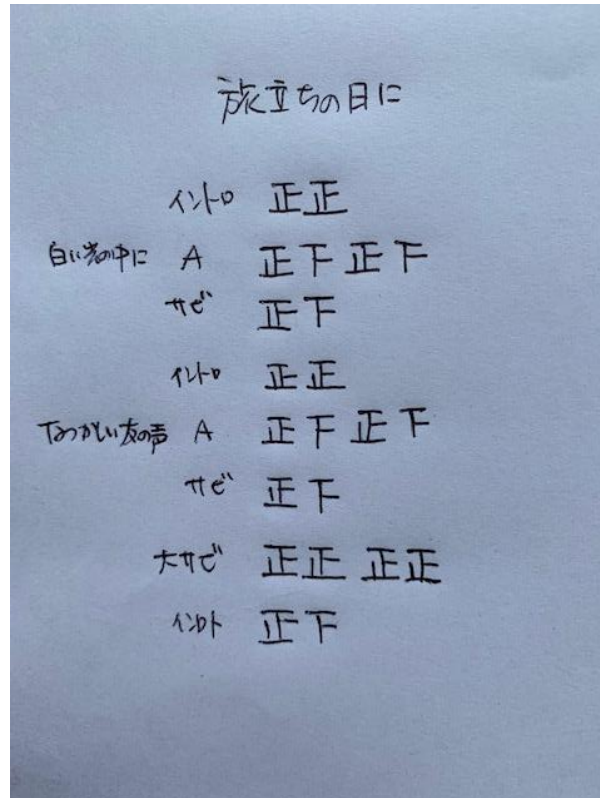 旅立ちの日に
イントロ 正正
白い光の中に A 正下 正下
サビ 正下
イントロ 正正
なつかしい友の声 A 正下 正下
サビ 正下
大サビ 正正 正正
イントロ 正下